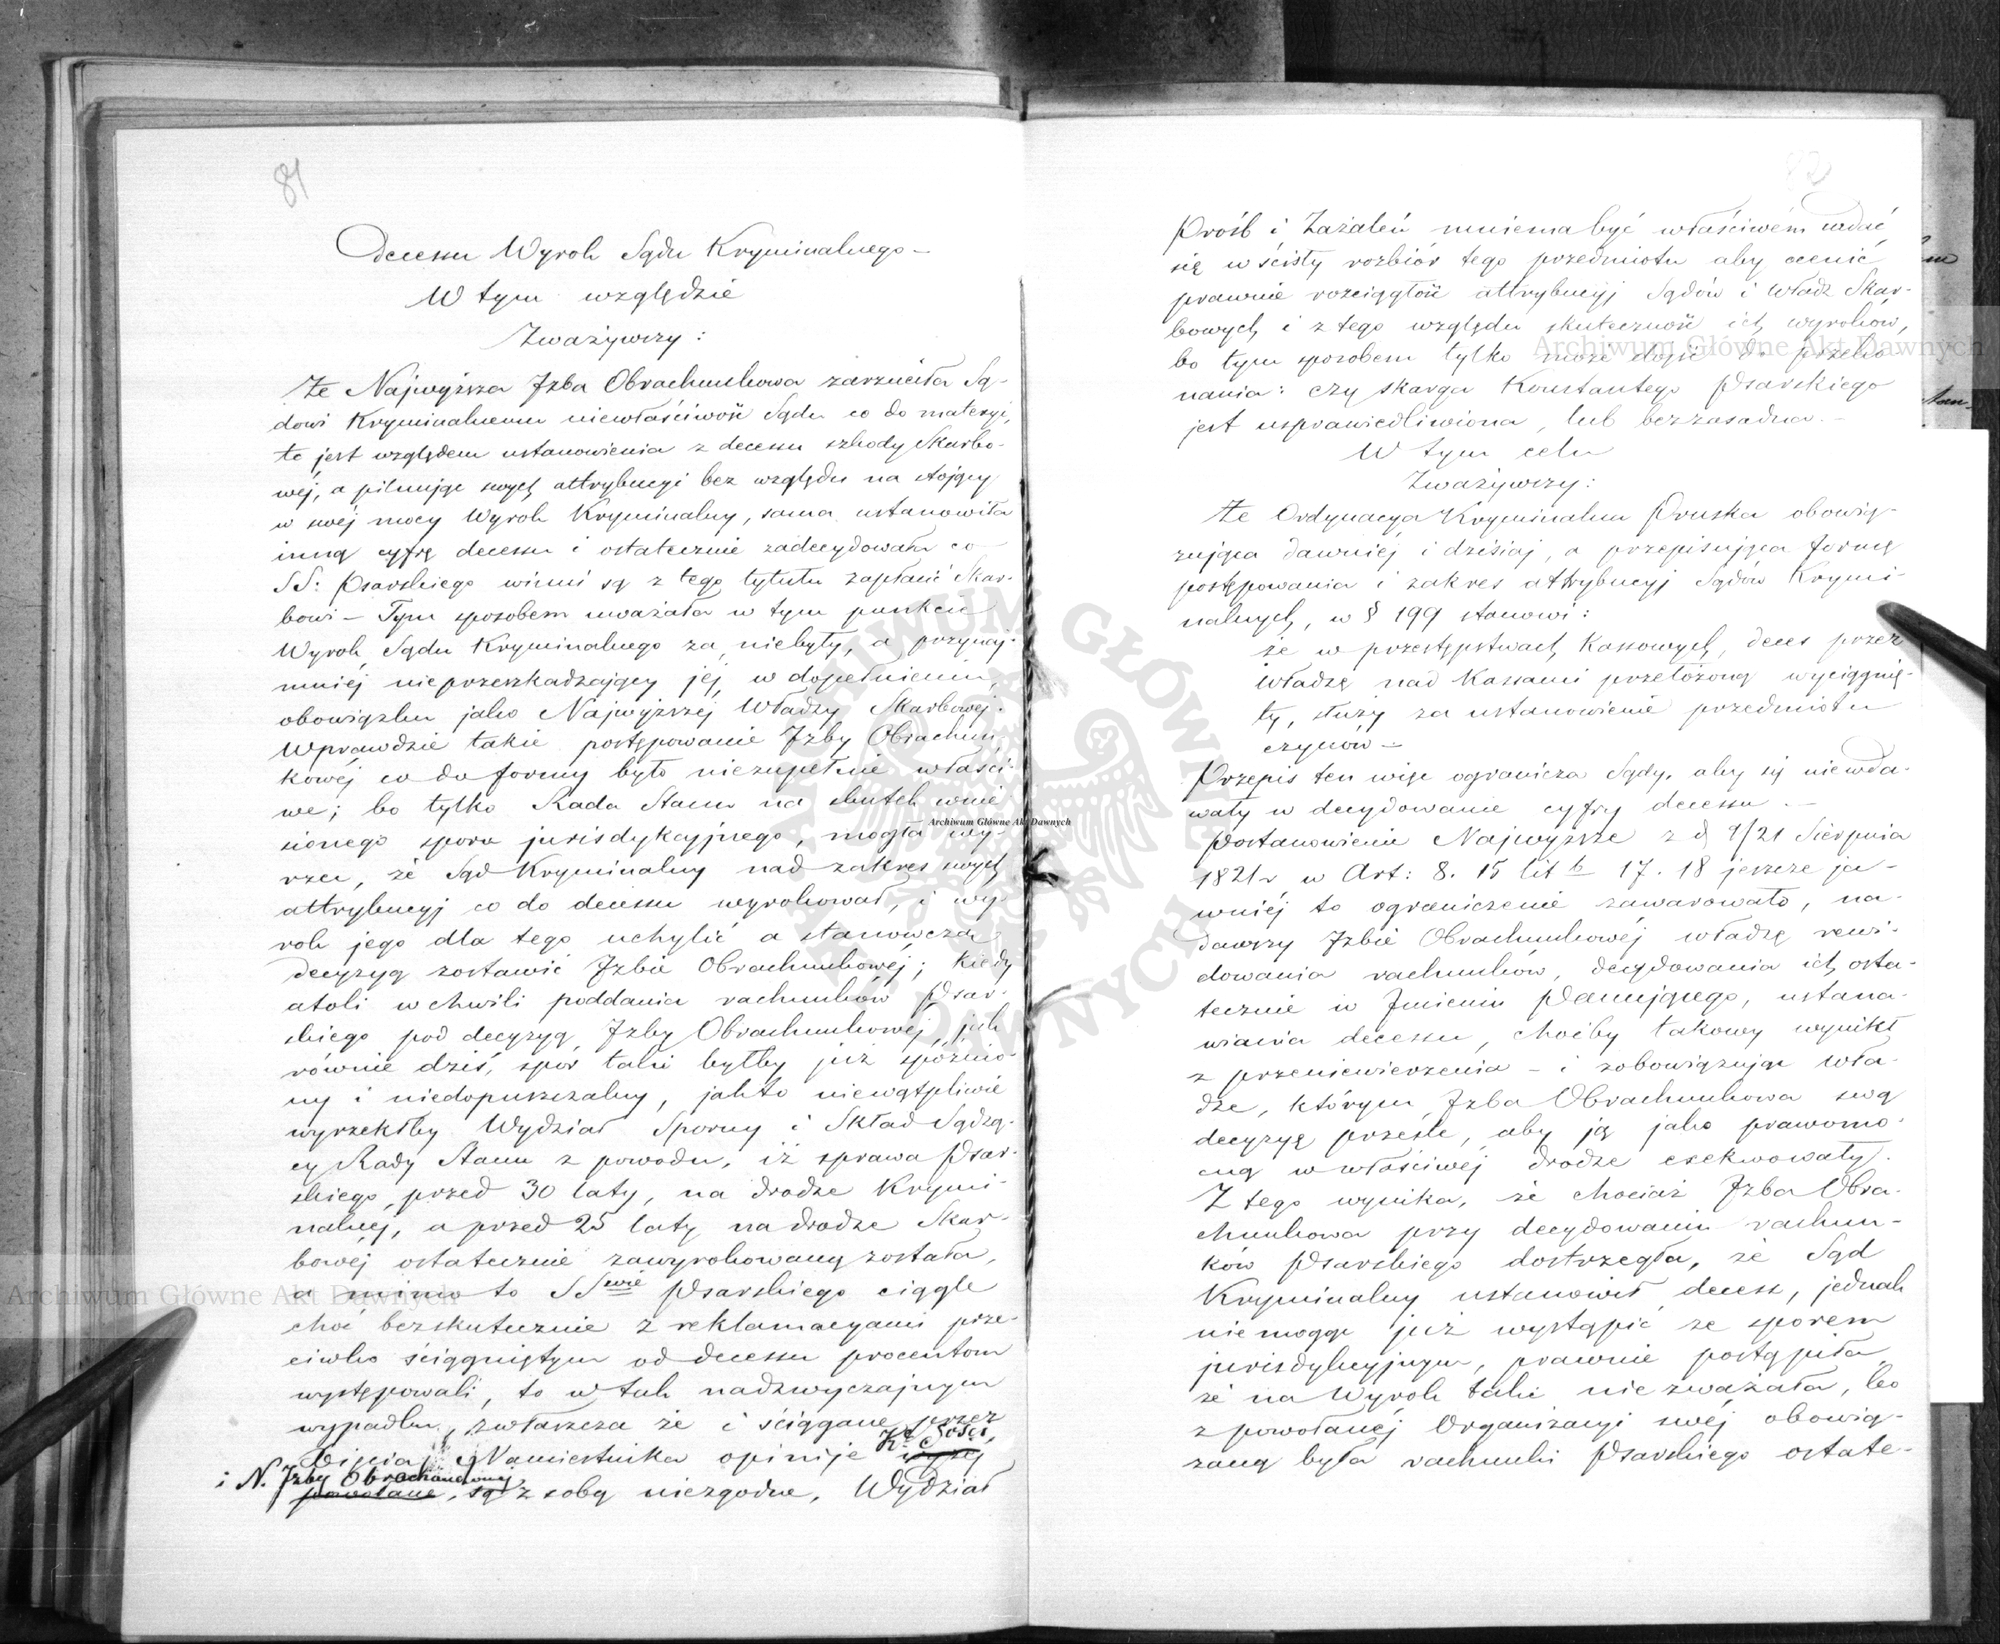 81
Decessu Wyrok Sądu Kryminalnego –
W tym względzie
Zważywszy:
Że Najwyższa Izba Obrachunkowa zarzuciła Są-
dowi Kryminalnemu niewłaściwość Sądu co do materyi,
to jest względem ustanowienia z decessu szkody Skarbo-
wéj, a pilnując swych attrybucyi bez względu na stojący
w swéj mocy Wyrok Kryminalny, sama ustanowiła
inną cyfrę decessu i ostatecznie zadecydowała co
SS: Psarskiego winni są z tego tytułu zapłacić Skar-
bowi – Tym sposobem uważała w tym punkcie
Wyrok Sądu Kryminalnego za niebyły, a przynaj-
mniéj nieprzeszkadzający jéj w dopełnieniu
obowiązku jako Najwyższéj Władzy Skarbowéj.
Wprawdzie takie postępowanie Izby Obrachun
kowéj co do formy było niezupełnie właści-
we; bo tylko Rada Stanu na skutek wnie
sionego sporu jurisdykcyjnego, mogła wy-
rzec, że Sąd Kryminalny nad zakres swych
attrybucyj co do decessu wyrokował, i wy-
rok jego dla tego uchylić a stanowczą
decyzyą zostawić Izbie Obrachunkowéj; kiedy
atoli w chwili poddania rachunków Psar-
skiego pod decyzyą Izby Obrachunkowéj, jak
równie dziś, spór taki byłby już spóźnio-
ny i niedopuszczalny, jakto niewątpliwie
wyrzekłby Wydział Sporny i Skład Sądzą-
cy Rady Stanu z powodu, iż sprawa Psar-
skiego przed 30 laty, na drodze Krymi-
nalnéj, a przed 25 laty na drodze Skar-
bowéj ostatecznie zawyrokowaną została,
a mimo to SSwie Psarskiego ciągle
choć bezskutecznie z reklamacyami prze-
ciwko ściągniętym od decessu procentom
występowali, to w tak nadzwyczajnym
wypadku, zwłaszcza że i ściągane przez
Namiestnika opinije
i N. Izby Obrachunkowej
powołane, są z sobą niezgodne, Wydział
Próśb i Zażaleń mniema być właściwém wdać
się w ścisły rozbiór tego przedmiotu aby ocenić
prawnie rozciągłość attrybucyj Sądów i Władz Skar-
bowych i z tego względu skuteczność ich wyroków,
bo tym sposobem tylko może dojść do przeko-
nania: czy skarga Konstantego Psarskiego
jest usprawiedliwiona, lub bezzasadna. –
W tym celu
Zważywszy:
Że Ordynacya Kryminalna Pruska obowią-
zująca dawniéj i dzisiaj, a przepisująca formę
postępowania i zakres attrybucyj Sądów Krymi-
nalnych, w § 199 stanowi:
że w przestępstwach Kassowych, deces przez
Władzę nad Kassami przełożoną wyciągnię-
ty, służy za ustanowienie przedmiotu
czynów –
Przepis ten więc ogranicza Sądy, aby się niewda-
wały w decydowanie cyfry decessu. –
Postanowienie Najwyższe z d 9/21 Sierpnia
1821 r w Art: 8. 15 lit b 17. 18 jeszcze ja-
wniéj to ograniczenie zawarowało, na-
dawszy Izbie Obrachunkowéj władzę rewi-
dowania rachunków, decydowania ich osta-
tecznie w Imieniu Panującego, ustana-
wiania decessu, choćby takowy wynikł
z przeniewierzenia – i zobowiązując Wła-
dze, którym Izba Obrachunkowa swą
decyzyę prześle, aby ją jako prawomo-
cną w właściwéj drodze exekwowały.
Z tego wynika, że chociaż Izba Obra-
chunkowa przy decydowaniu rachun-
ków Psarskiego dostrzegła, że Sąd
Kryminalny ustanowił decess, jednak
niemogąc już wystąpić ze sporem
jurisdykcyjnym, prawnie postąpiła
że na Wyrok taki nie zważała, bo
z powołanéj Organizacyi swéj obowią-
zaną była rachunki Psarskiego ostate-
Archiwum Główne Akt Dawnych
Archiwum Główne Akt Dawnych
Archiwum Główne Akt Dawnych
ARCHIWUM GŁÓWNE AKT DAWNYCH